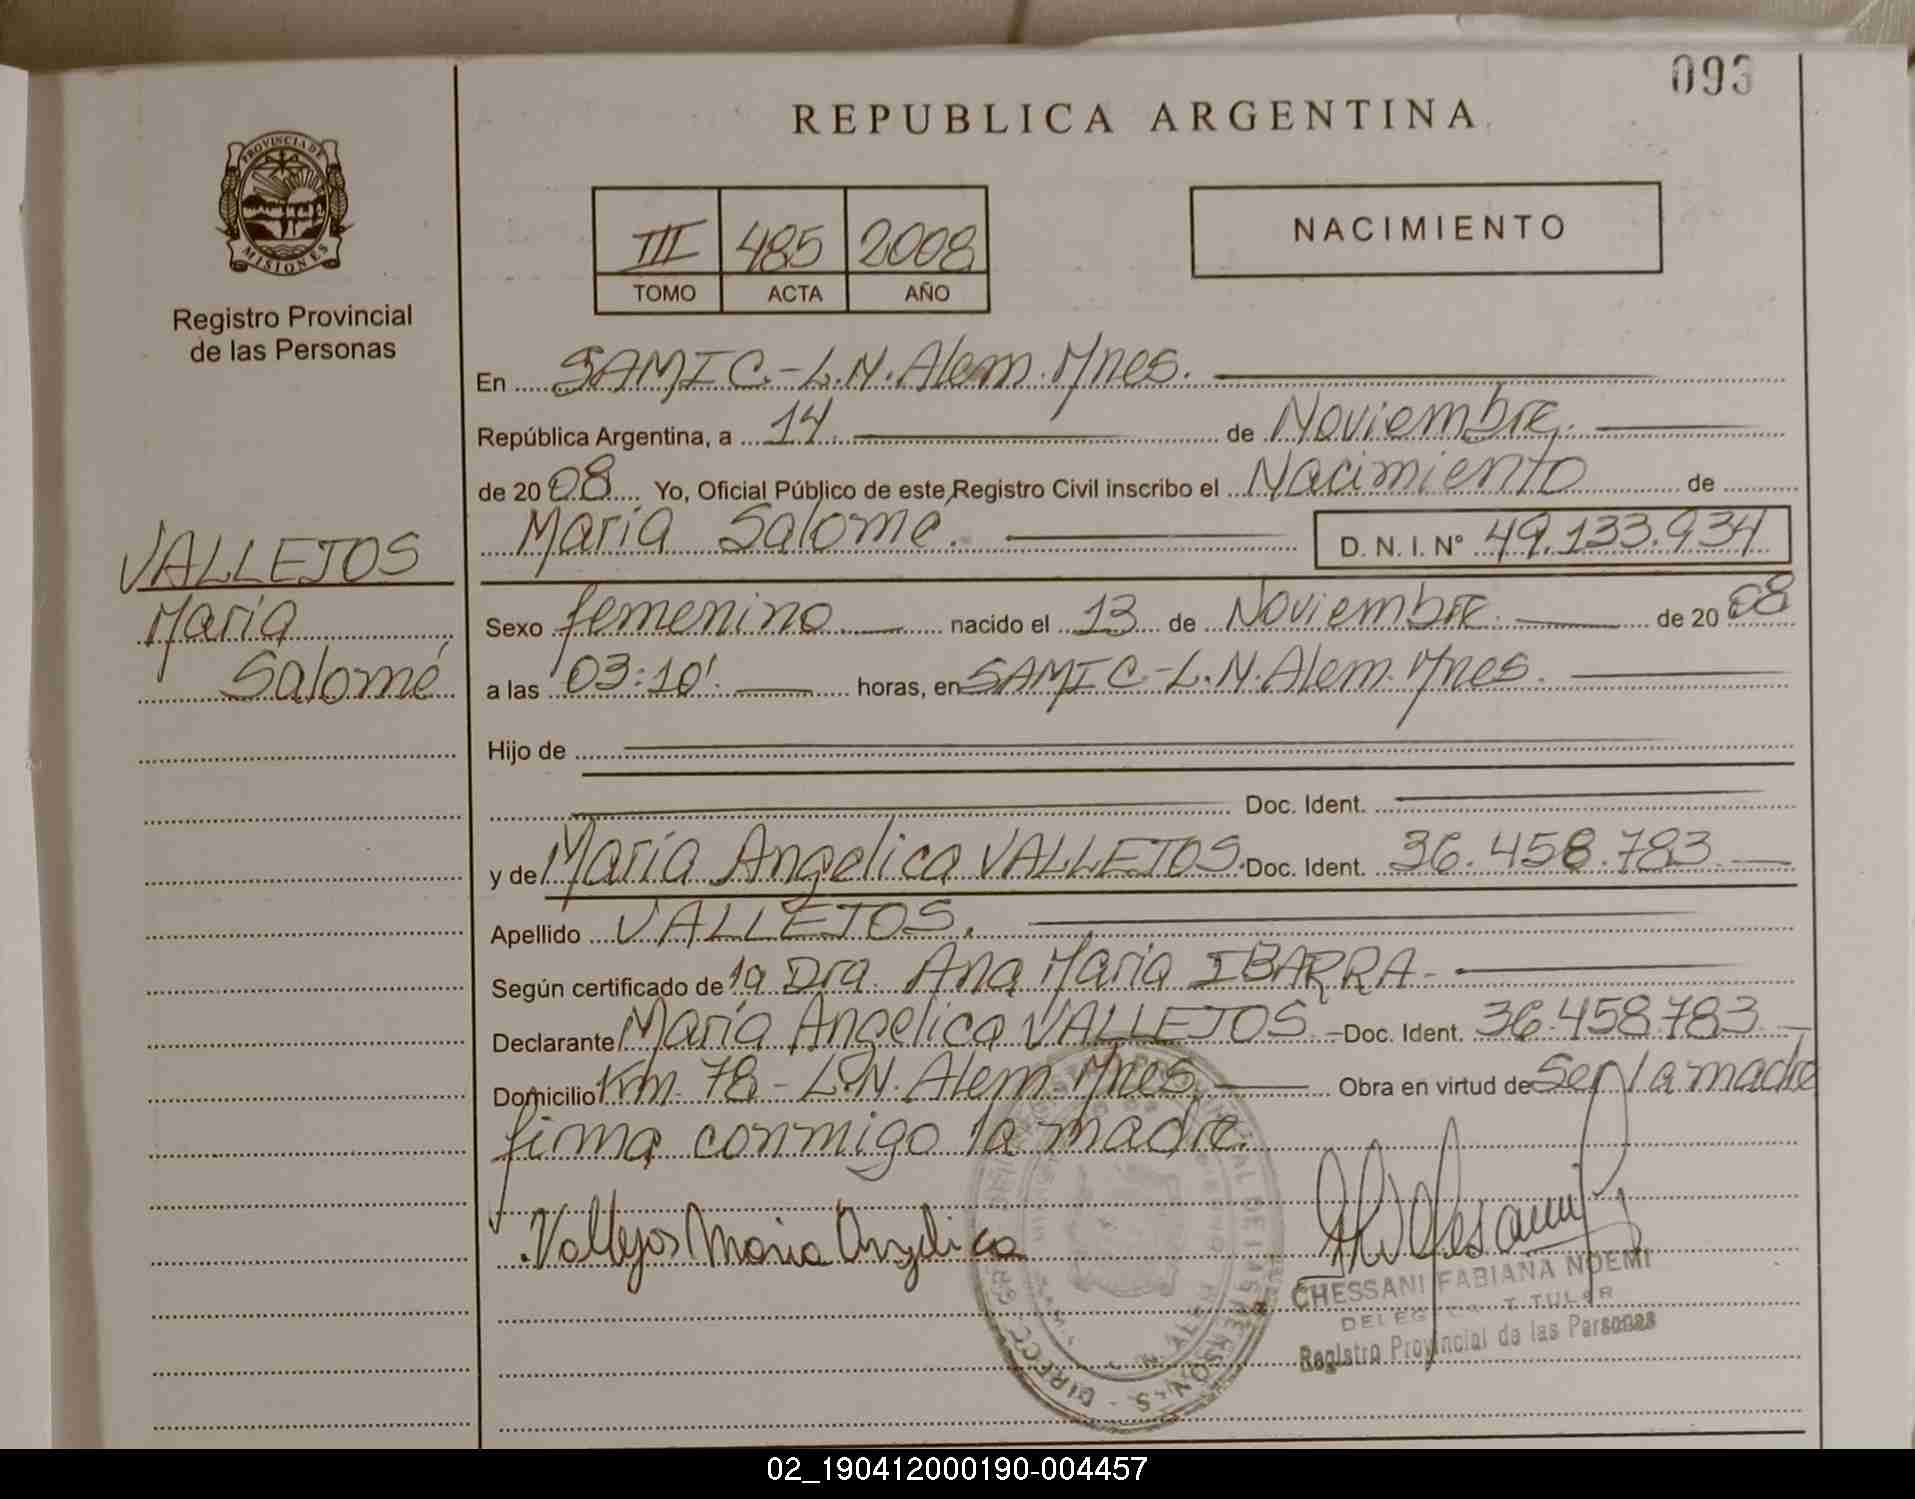 093
REPUBLICA ARGENTINA
PROVINCIA DE
MISIONES
Registro Provincial
de las Personas
III 485 2008
TOMO ACTA AÑO
NACIMIENTO
En SAMIC.-L.N.Alem.Mnes.
República Argentina, a 14 de Noviembre.
de 2008 Yo, Oficial Público de este Registro Civil inscribo el Nacimiento de
María Salome. D. N. I. N° 49.133.934
VALLEJOS
María
Salomé
Sexo femenino nacido el 13 de Noviembre. de 2008
a las 03:10'. horas, en SAMIC-L.N.Alem.Mnes.
Hijo de
Doc. Ident.
y de María Angelica VALLEJOS. Doc. Ident. 36.458.783
Apellido VALLEJOS.
Según certificado de la Dra. Ana Maria IBARRA-
Declarante María Angelica VALLEJOS.- Doc. Ident. 36.458.783
Domicilio Km. 78-L.N.Alem.Mnes. Obra en virtud de Ser la madre
firma conmigo la madre.
Vallejos Maria Angelica
CHESSANI FABIANA NOEMI
Registro Provincial de las Personas
02_190412000190-004457